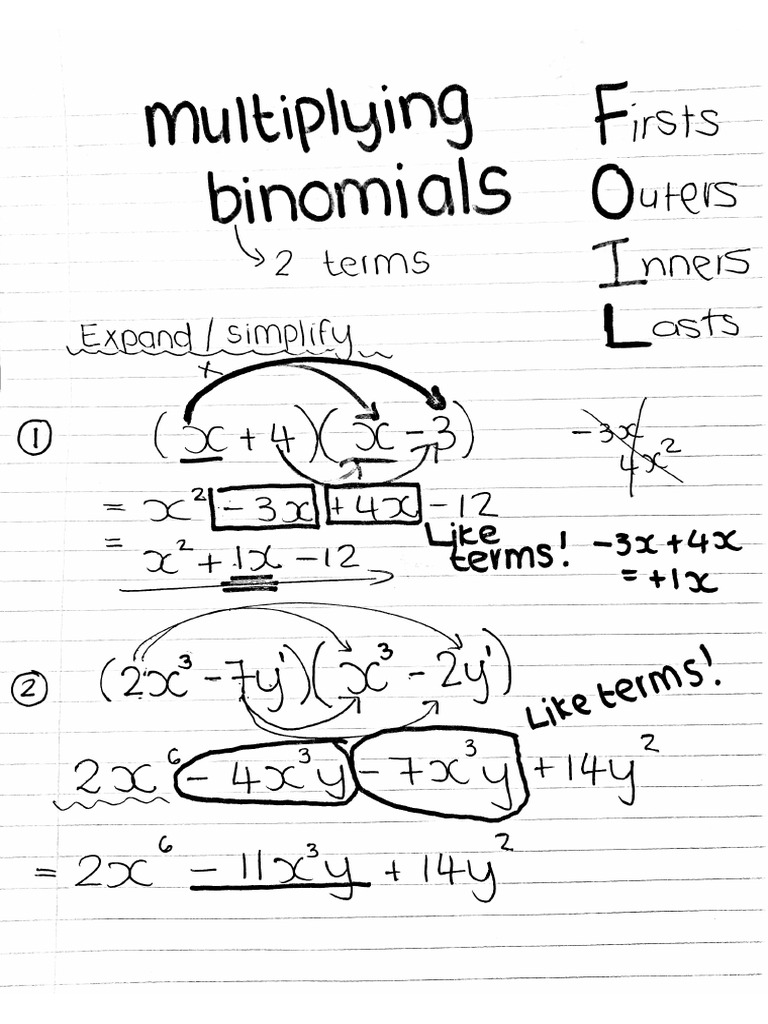 multiplying
binomials
↳ 2 terms
Firsts
Outers
Inners
Lasts
Expand / simplify
×
① (x + 4)(x - 3)
= x² - 3x + 4x - 12
= x² + 1x - 12
Like
terms!
-3x
4x²
-3x + 4x
= +1x
② (2x³ - 7y¹)(x³ - 2y¹)
Like terms!
2x⁶ - 4x³y - 7x³y + 14y²
= 2x⁶ - 11x³y + 14y²